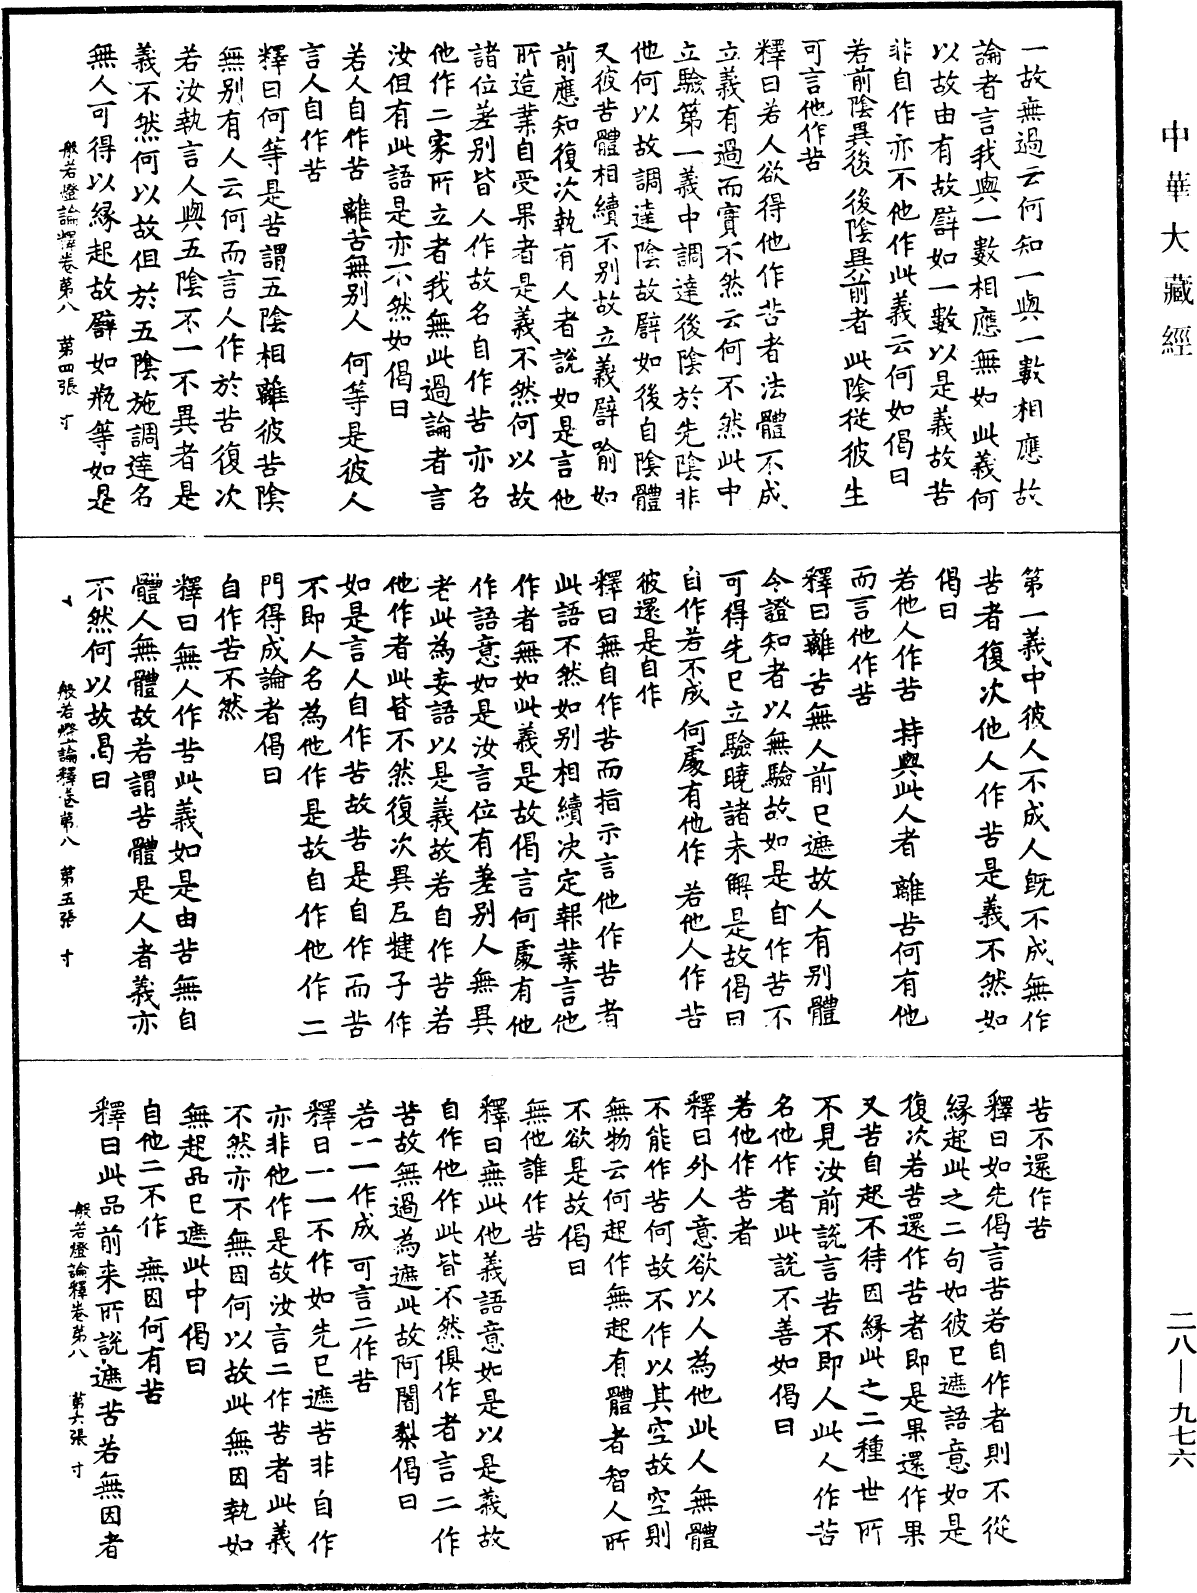 中華大藏經
一故無過云何知一與一數相應故
論者言我與一數相應無如此義何
以故由有故譬如一數以是義故苦
非自作亦不他作此義云何如偈曰
若前陰異後 後陰異前者 此陰從彼生
可言他作苦
釋曰若人欲得他作苦者法體不成
立義有過而實不然云何不然此中
立驗第一義中調達後陰於先陰非
他何以故調達陰故譬如後自陰體
又彼苦體相續不別故立義譬喻如
前應知復次執有人者說如是言他
所造業自受果者是義不然何以故
諸位差別皆人作故名自作苦亦名
他作二家所立者我無此過論者言
汝但有此語是亦不然如偈曰
若人自作苦 離苦無別人 何等是彼人
言人自作苦
釋曰何等是苦謂五陰相離彼苦陰
無別有人云何而言人作於苦復次
若汝執言人與五陰不一不異者是
義不然何以故但於五陰施調達名
無人可得以緣起故譬如瓶等如是
般若燈論釋卷第八 第四張 寸
第一義中彼人不成人既不成無作
苦者復次他人作苦是義不然如
偈曰
若他人作苦 持與此人者 離苦何有他
而言他作苦
釋曰離苦無人前已遮故人有別體
今證知者以無驗故如是自作苦不
可得先已立驗曉諸未解是故偈曰
自作若不成 何處有他作 若他人作苦
彼還是自作
釋曰無自作苦而指示言他作苦者
此語不然如別相續決定報業言他
作者無如此義是故偈言何處有他
作語意如是汝言位有差別人無異
者此為妄語以是義故若自作苦若
他作者此皆不然復次異尼揵子作
如是言人自作苦故苦是自作而苦
不即人名為他作是故自作他作二
門得成論者偈曰
自作苦不然
釋曰無人作苦此義如是由苦無自
體人無體故若謂苦體是人者義亦
不然何以故偈曰
般若燈論釋卷第八 第五張 寸
苦不還作苦
釋曰如先偈言苦若自作者則不從
緣起此之二句如彼已遮語意如是
復次若苦還作苦者即是果還作果
又苦自起不待因緣此之二種世所
不見汝前說言苦不即人此人作苦
名他作者此說不善如偈曰
若他作苦者
釋曰外人意欲以人為他此人無體
不能作苦何故不作以其空故空則
無物云何起作無起有體者智人所
不欲是故偈曰
無他誰作苦
釋曰無此他義語意如是以是義故
自作他作此皆不然俱作者言二作
苦故無過為遮此故阿闍梨偈曰
若一一作成 可言二作苦
釋曰一一不作如先已遮苦非自作
亦非他作是故汝言二作苦者此義
不然亦不無因何以故此無因執如
無起品已遮此中偈曰
自他二不作 無因何有苦
釋曰此品前來所說遮苦若無因者
般若燈論釋卷第八 第六張 寸
二八—九七六